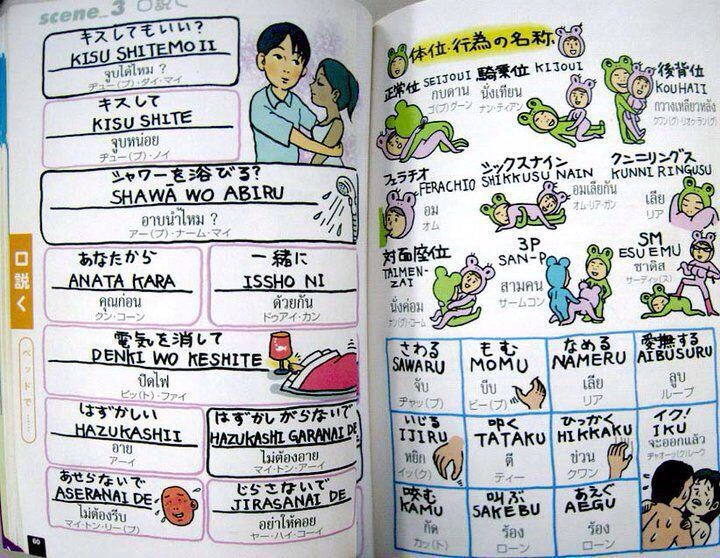 scene_3 口説く
キスしてもいい?
KISU SHITEMO II
จูบได้ไหม ?
ヂュー(プ)・ダイ・マイ
キスして
KISU SHITE
จูบหน่อย
ヂュー(プ)・ノイ
シャワーを浴びる?
SHAWĀ WO ABIRU
อาบน้ำไหม ?
アー(プ)・ナーム・マイ
あなたから
ANATA KARA
คุณก่อน
クン・コーン
一緒に
ISSHO NI
ด้วยกัน
ドゥアイ・カン
電気を消して
DENKI WO KESHITE
ปิดไฟ
ピッ(ト)・ファイ
はずかしい
HAZUKASHII
อาย
アーイ
はずかしがらないで
HAZUKASHI GARANAI DE
ไม่ต้องอาย
マイ・トン・アーイ
あせらないで
ASERANAI DE
ไม่ต้องรีบ
マイ・トン・リー(プ)
じらさないで
JIRASANAI DE
อย่าให้คอย
ヤー・ハイ・コーイ
口説く
ベッドで……
60
体位・行為の名称
正常位 SEIJOUI
กบดาน
ゴ(プ)ダーン
騎乗位 KIJOUI
นั่งเทียน
ナン・ティアン
後背位
KOUHAII
กวางเหลียวหลัง
クワン(グ)・リオ・ラン(グ)
フェラチオ
FERACHIO
อม
オム
シックスナイン
SHIKKUSU NAIN
อมเลียกัน
オム・リア・ガン
クンニリングス
KUNNI RINGUSU
เลีย
リア
対面座位
TAIMEN-
ZAI
นั่งค่อม
ナン(グ)・コーム
3P
SAN-P
สามคน
サームコン
SM
ESU EMU
ซาดิส
サーディッ(ス)
さわる
SAWARU
จับ
ヂャッ(プ)
もむ
MOMU
บีบ
ビー(プ)
なめる
NAMERU
เลีย
リア
愛撫する
AIBUSURU
ลูบ
ループ
いじる
IJIRU
หยิก
イッ(ク)
叩く
TATAKU
ตี
ティー
ひっかく
HIKKAKU
ข่วน
クワン
イク!
IKU
จะออกแล้ว
ヂャオー(ク)ルーウ
咬む
KAMU
กัด
カッ(ト)
叫ぶ
SAKEBU
ร้อง
ローン
あえぐ
AEGU
ร้อง
ローン